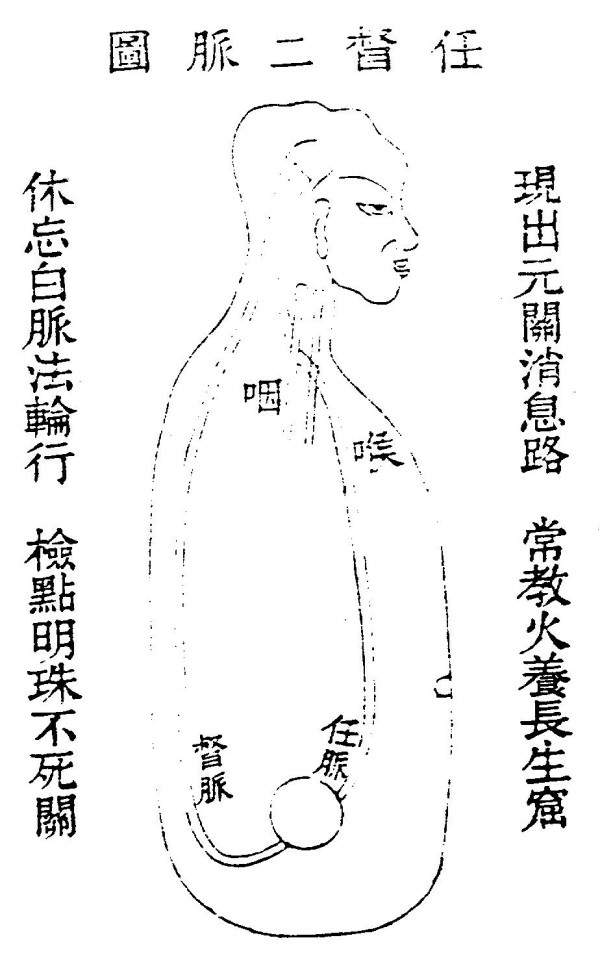 任督二脈圖
現出元關消息路 常教火養長生窟
休忘白脈法輪行 檢點明珠不死關
咽
喉
任脈
督脈